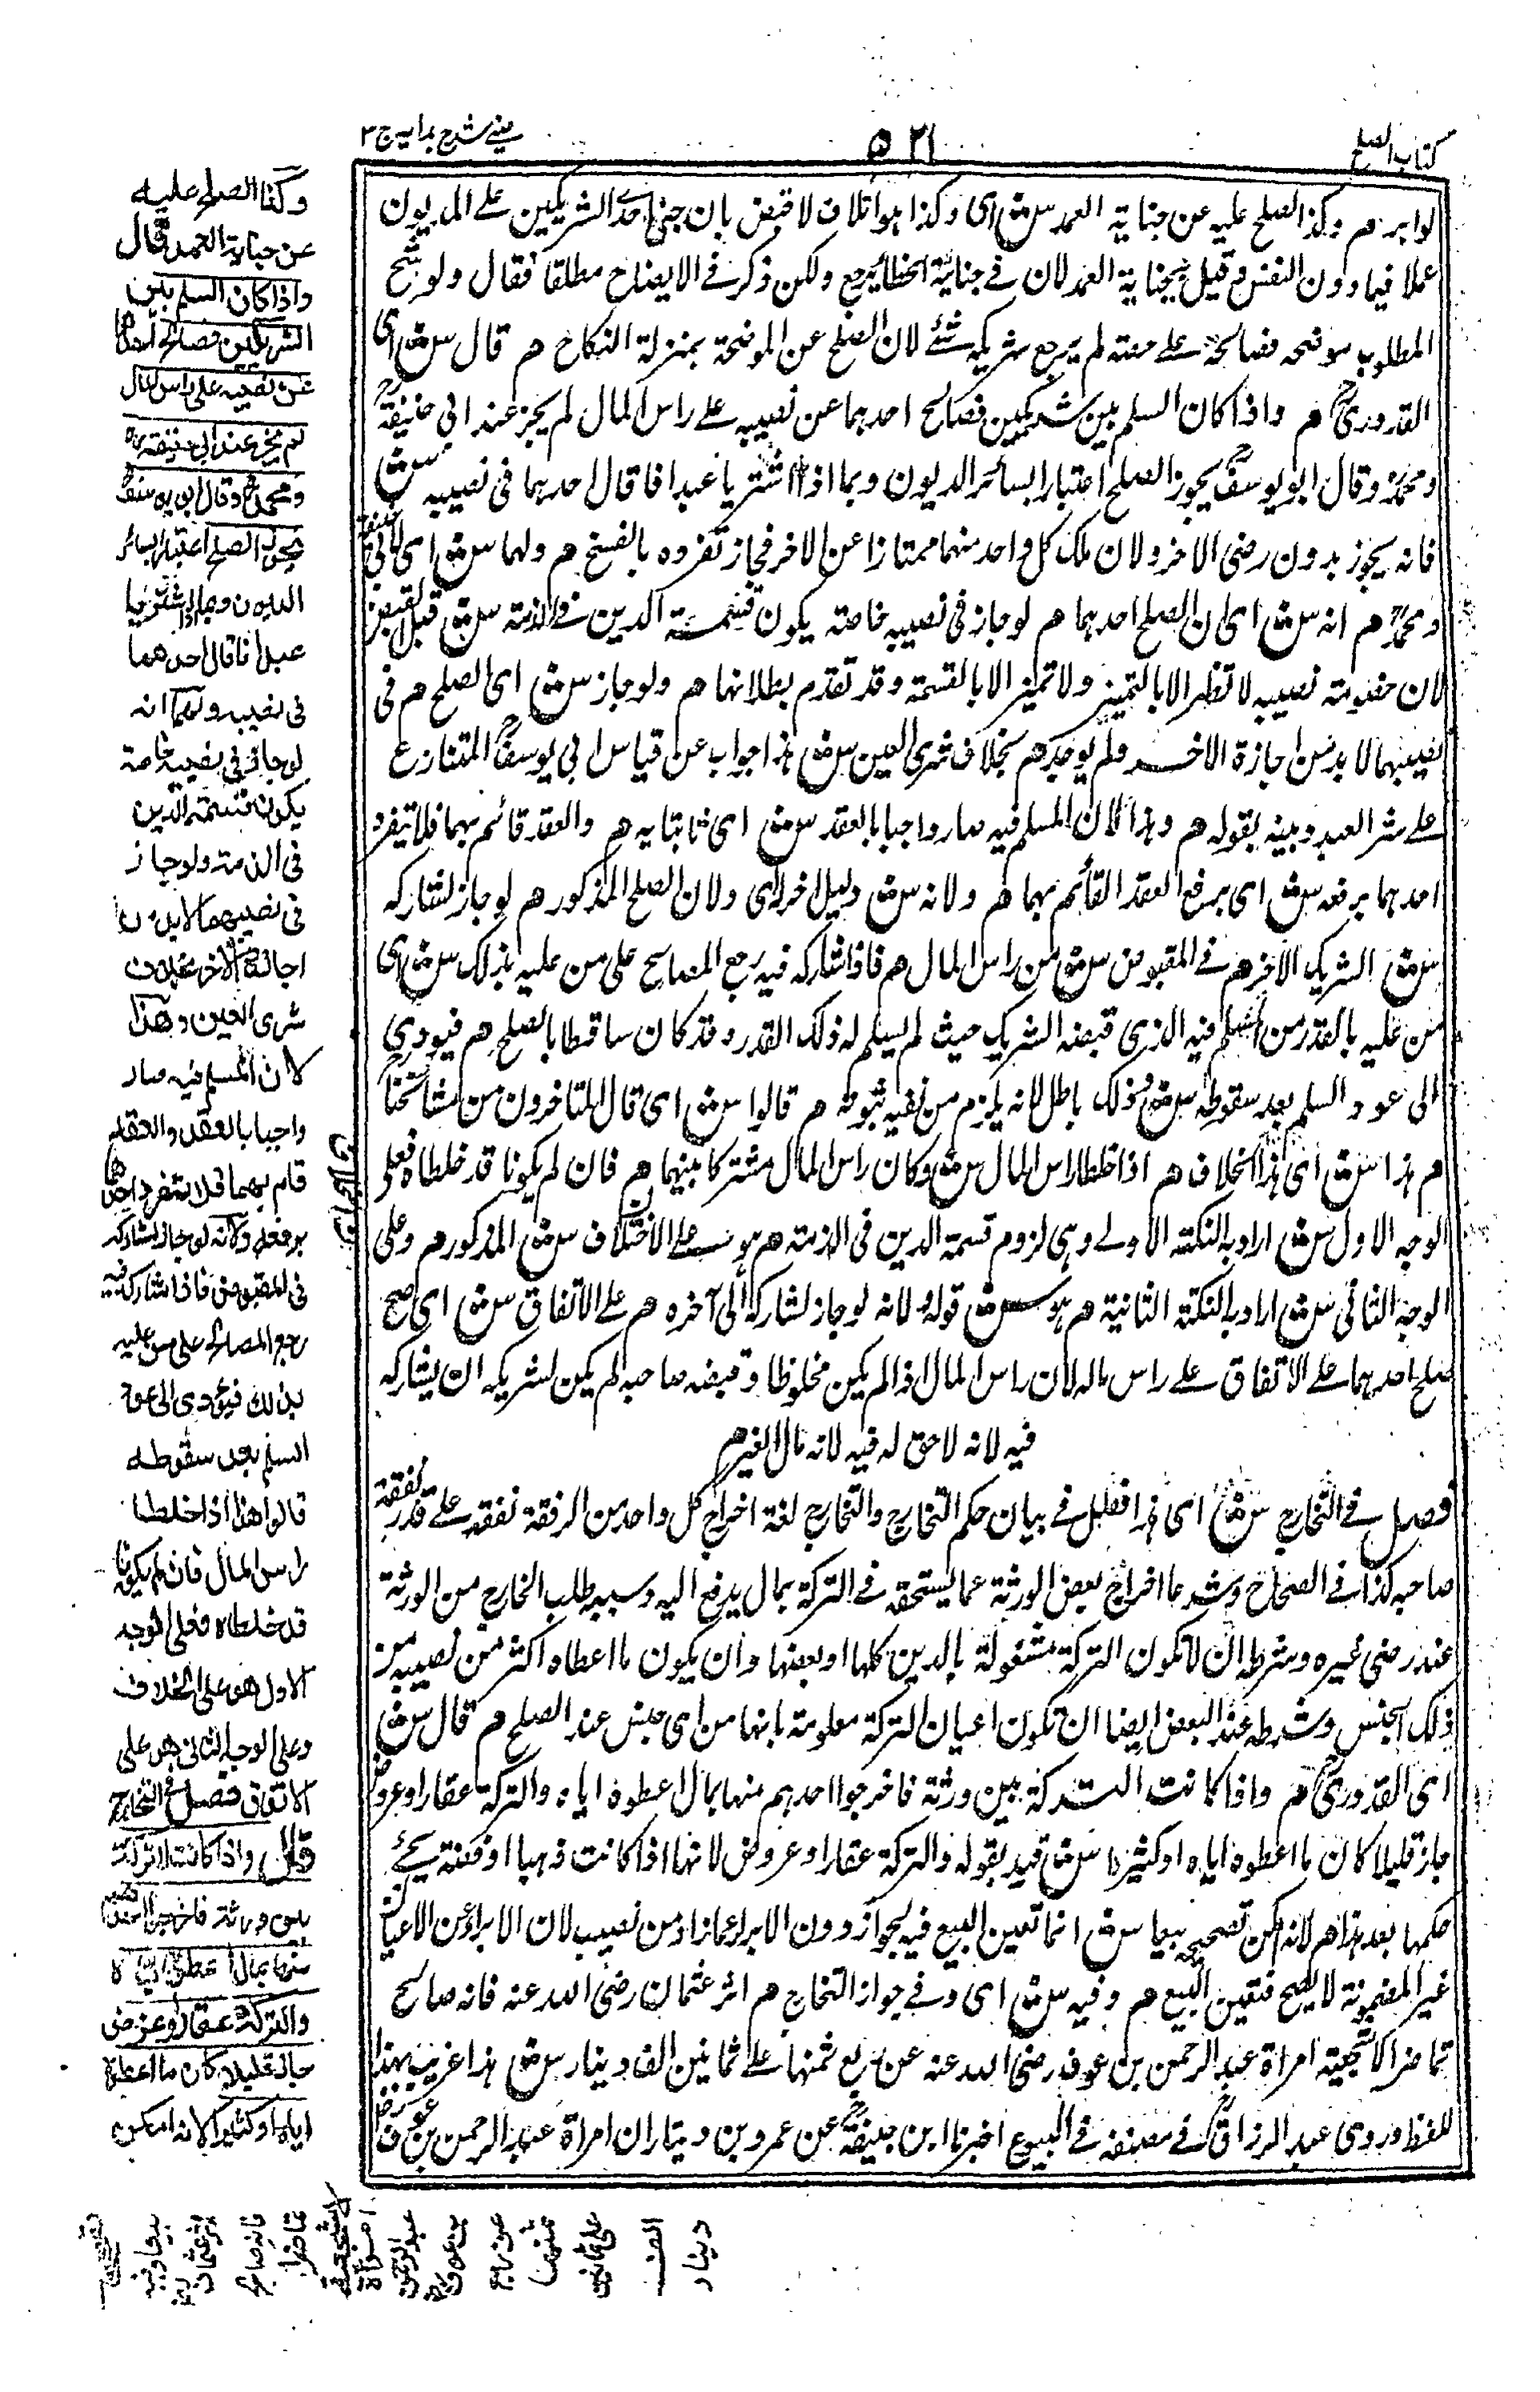 كتاب الصلح
٥٢١
عيني شرح هدايه ج ٣
لو ابره م وكذا الصلح عليه عن جناية العمد س ش اى وكذا هو اتلاف لا قبض بان جنى احد الشريكين على المديون
عملا فيما دون النفس وقيل بجناية العمد لان فى جناية الخطا يرجع ولكن ذكر فى الايضاح مطلقا فقال ولو شج
المطلوب موضحه فصالحه على حصته لم يرجع شريكه بشئ لان الصلح عن الموضحة بمنزلة النكاح م قال س ش اى
القدورى م واذا كان السلم بين شريكين فصالح احدهما عن نصيبه على راس المال لم يجز عند ابى حنيفة
ومحمد وقال ابو يوسف يجوز الصلح اعتبارا بسائر الديون وبما اذا اشتريا عبدا فاقال احدهما فى نصيبه س ش
فانه يجوز بدون رضى الاخر ولان ملك كل واحد منهما ممتازا عن الاخر فجاز تفرده بالفسخ م ولهما س ش اى لابى حنيفة
ومحمد م انه س ش اى ان الصلح احدهما م لو جاز فى نصيبه خاصة يكون قسمة الدين فى الذمة س ش قبل القبض
لان خصوصة نصيبه لا تظهر الا بالتميز ولا تميز الا بالقسمة وقد تقدم بطلانها م ولو جاز س ش اى الصلح م فى
نصيبهما لا بد من اجازة الاخر ولم يوجد م بخلاف شرى العين س ش هذا جواب عن قياس ابى يوسف المتنازع
على شر العبد وبينه بقوله م وهذا لان المسلم فيه صار واجبا بالعقد س ش اى ثابتا به م والعقد قائم بهما فلا يتفرد
احدهما برفعه س ش اى برفع العقد القائم بهما م ولانه س ش دليل اخر اى ولان الصلح المذكور م لو جاز لشاركه
س ش الشريك الاخر م فى المقبوض س ش من راس المال م فاذا شاركه فيه رجع المصالح على من عليه بذلك س ش اى
من عليه بالقدر من المسلم فيه الذى قبضه الشريك حيث لم يسلم له ذلك القدر وقد كان ساقطا بالصلح م فيودى
الى عود السلم بعد سقوطه س ش وذلك باطل لانه يلزم من نفيه ثبوته م قالوا س ش اى قال المتاخرون من مشائخنا
م هذا س ش اى هذا الخلاف م اذا خلطا راس المال س ش وكان راس المال مشتركا بينهما م فان لم يكونا قد خلطاه فعلى
الوجه الاول س ش اراد به النكتة الاولى وهى لزوم قسمة الدين فى الذمة م هو على الاختلاف س ش المذكور م وعلى
الوجه الثانى س ش اراد به النكتة الثانية م هو س ش قوله ولانه لو جاز لشاركه الى آخره م على الاتفاق س ش اى صح
صلح احدهما على الاتفاق على راس ماله لان راس المال اذا لم يكن مخلوطا وقبضه صاحبه لم يكن لشريكه ان يشاركه
فيه لانه لا حق له فيه لانه مال الغير م
فصل فى التخارج س ش اى هذا فصل فى بيان حكم التخارج والتخارج لغة اخراج كل واحد من الرفقة نفقه على قدر نفقة
صاحبه كذا فى الصحاح وشرعا اخراج بعض الورثة عما يستحقه فى التركة بمال يدفع اليه وسببه طلب الخارج من الورثة
عند رضى غيره وشرطه ان لا تكون التركة مشغولة بالدين كلها او بعضها وان يكون ما اعطاه اكثر من نصيبه من
ذلك الجنس وشرطه عند البعض ايضا ان تكون اعيان التركة معلومة بانها من اى جنس عند الصلح م قال س ش
اى القدورى م واذا كانت التركة بين ورثة فاخرجوا احدهم منها بمال اعطوه اياه والتركة عقار او عروض
جاز قليلا كان ما اعطوه اياه او كثيرا س ش قيد بقوله والتركة عقار او عروض لانها اذا كانت ذهبا او فضة يجئ
حكمها بعد هذا م لانه امكن تصحيحه بيعا س ش انما تعين البيع فيه بجوازه دون الابراء عما زاد من نصيب لان الابراء عن الاعيان
غير المضمونة لا يصح فتعين البيع م وفيه س ش اى وفى جواز التخارج م اثر عثمان رضى الله عنه فانه صالح
تماضر الاشجعية امراة عبد الرحمن بن عوف رضى الله عنه عن ربع ثمنها على ثمانين الف دينار س ش هذا غريب بهذا
اللفظ وروى عبد الرزاق فى مصنفه فى البيوع اخبرنا ابن عيينة عن عمرو بن دينار ان امراة عبد الرحمن بن عوف
وكذا الصلح عليه
عن جناية العمد قال
واذا كان السلم بين
الشريكين فصالح احدهما
عن نصيبه على راس المال
لم يجز عند ابى حنيفة ره
ومحمد وقال ابو يوسف
يجوز الصلح اعتبارا بسائر
الديون وبما اذا اشتريا
عبدا فاقال احدهما
فى نصيبه ولهما انه
لو جاز فى نصيبه خاصة
يكون قسمة الدين
فى الذمة ولو جاز
فى نصيبهما لا بد من
اجازة الاخر بخلاف
شرى العين وهذا
لان المسلم فيه صار
واجبا بالعقد والعقد
قام بهما فلا يتفرد احدهما
برفعه ولانه لو جاز لشاركه
فى المقبوض فاذا شاركه فيه
رجع المصالح على من عليه
بذلك فيؤدى الى عود
السلم بعد سقوطه
قالوا هذا اذا خلطا
راس المال فان لم يكونا
قد خلطاه فعلى الوجه
الاول هو على الخلاف
وعلى الوجه الثانى هو على
الاتفاق فصل فى التخارج
قال واذا كانت التركة
بين ورثة فاخرجوا احدهم
منها بمال اعطوه اياه
والتركة عقار او عروض
جاز قليلا كان ما اعطوه
اياه او كثيرا لانه امكن
تصحيحه
بيعا وفيه
اثر عثمان
فانه صالح
تماضر
الاشجعية
امراة
عبد الرحمن
بن عوف
عن ربع
ثمنها
على ثمانين
الف
دينار